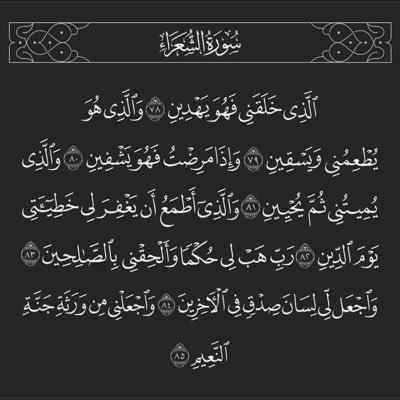 سُورَةُ الشُّعَرَاءِ
الَّذِى خَلَقَنِى فَهُوَ يَهْدِينِ ٧٨ وَالَّذِى هُوَ
يُطْعِمُنِى وَيَسْقِينِ ٧٩ وَإِذَا مَرِضْتُ فَهُوَ يَشْفِينِ ٨٠ وَالَّذِى
يُمِيتُنِى ثُمَّ يُحْيِينِ ٨١ وَالَّذِىٓ أَطْمَعُ أَن يَغْفِرَ لِى خَطِيٓـَٔتِى
يَوْمَ الدِّينِ ٨٢ رَبِّ هَبْ لِى حُكْمًا وَأَلْحِقْنِى بِالصَّـٰلِحِينَ ٨٣
وَاجْعَل لِّى لِسَانَ صِدْقٍ فِى الْـَٔاخِرِينَ ٨٤ وَاجْعَلْنِى مِن وَرَثَةِ جَنَّةِ
النَّعِيمِ ٨٥